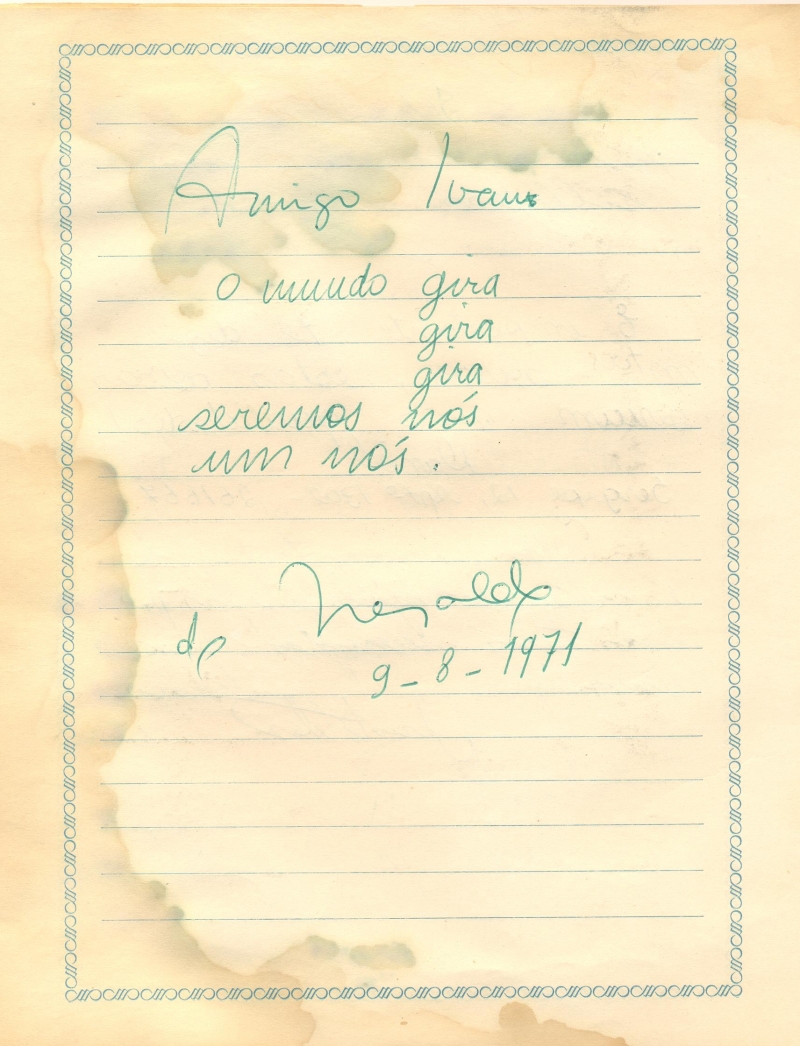 Amigo Ivan
o mundo gira
gira
gira
seremos nós
um nós.
de
9-8-1971